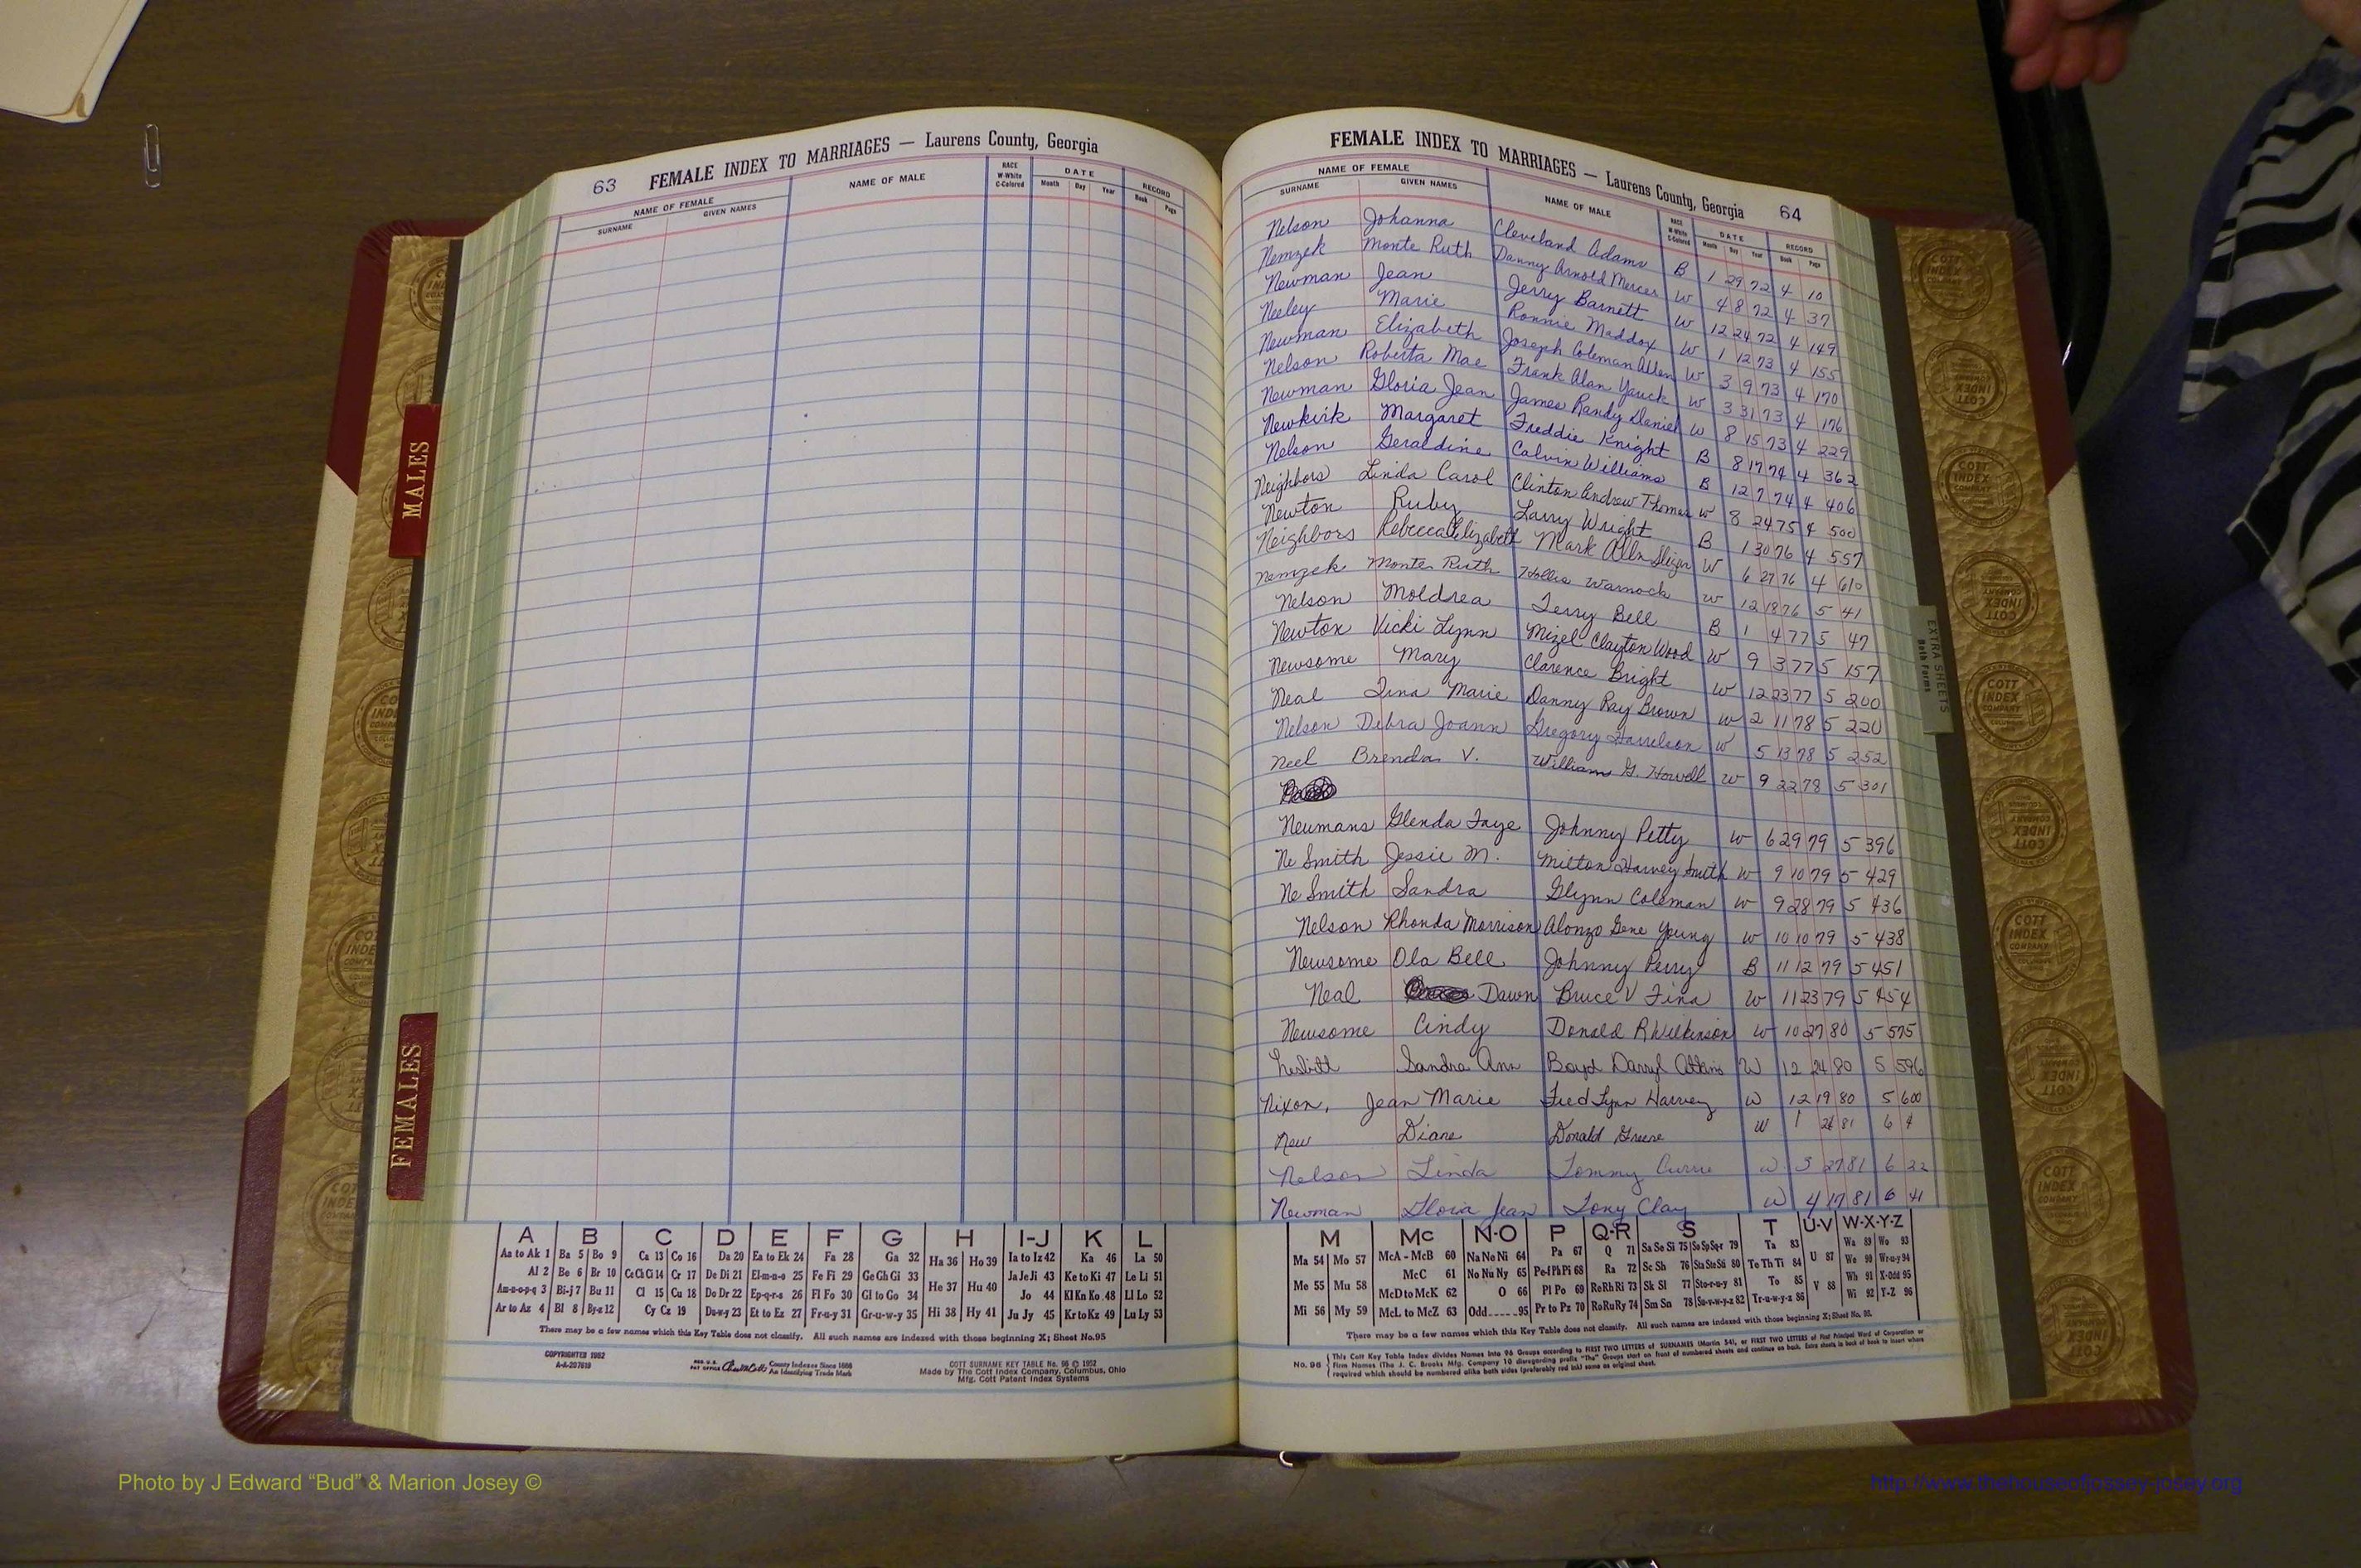 63 FEMALE INDEX TO MARRIAGES — Laurens County, Georgia
NAME OF FEMALE NAME OF MALE RACE W-White C-Colored DATE RECORD
SURNAME GIVEN NAMES Month Day Year Book Page
MALES
FEMALES
FEMALE INDEX TO MARRIAGES — Laurens County, Georgia 64
NAME OF FEMALE NAME OF MALE RACE W-White C-Colored DATE RECORD
SURNAME GIVEN NAMES Month Day Year Book Page
Nelson Johanna Cleveland Adams B 1 29 72 4 10
Nemzek Monte Ruth Danny Arnold Mercer W 4 8 72 4 37
Newman Jean Jerry Barnett W 12 24 72 4 149
Neeley Marie Ronnie Maddox W 1 12 73 4 155
Newman Elizabeth Joseph Coleman Allen W 3 9 73 4 170
Nelson Roberta Mae Frank Alan Yauck W 3 31 73 4 176
Newman Gloria Jean James Randy Daniel W 8 15 73 4 229
Newkirk Margaret Freddie Knight B 8 17 74 4 362
Nelson Geraldine Calvin Williams B 12 7 74 4 406
Neighbors Linda Carol Clinton Andrew Thomas W 8 24 75 4 500
Newton Ruby Larry Wright B 1 30 76 4 557
Neighbors Rebecca Elizabeth Mark W 6 27 76 4 610
Nemzek Monte Ruth Hollis Warnock W 12 18 76 5 41
Nelson Moldrea Terry Bell B 1 4 77 5 47
Newton Vicki Lynn Mizel Clayton Wood W 9 3 77 5 157
Newsome Mary Clarence Bright W 12 23 77 5 200
Neal Tina Marie Danny Ray Brown W 2 11 78 5 220
Nelson Debra Joann Gregory Harrelson W 5 13 78 5 252
Neel Brenda V. William G. Howell W 9 22 78 5 301
Neumans Glenda Faye Johnny Petty W 6 29 79 5 396
Ne Smith Jessie M. Milton Harvey Smith W 9 10 79 5 429
Ne Smith Sandra Glynn Coleman W 9 28 79 5 436
Nelson Rhonda Morrison Alonzo Gene Young W 10 10 79 5 438
Newsome Ola Bell Johnny Perry B 11 12 79 5 451
Neal Dawn Bruce V Fina W 11 23 79 5 454
Newsome Cindy Donald R Wilkinson W 10 27 80 5 575
Nesbitt Sandra Ann Boyd Darryl Adkins W 12 24 80 5 596
Nixon, Jean Marie Fred Lynn Harvey W 12 19 80 5 600
New Diane Donald Greene W 1 81 6 4
Nelson Linda Tommy Currie W 3 27 81 6 22
Newman Gloria Jean Tony Clay W 4 17 81 6 41
EXTRA SHEETS
Both Forms
A B C D E F G H I-J K L
Aa to Ak 1 Ba 5 Bo 9 Ca 13 Co 16 Da 20 Ea to Ek 24 Fa 28 Ga 32 Ha 36 Ho 39 Ia to Iz 42 Ka 46 La 50
Al 2 Be 6 Br 10 Ce Ch Ci 14 Cr 17 De Di 21 El-m-n-o 25 Fe Fi 29 Ge Gh Gi 33 Ja Je Ji 43 Ke to Ki 47 Le Li 51
Am-n-o-p-q 3 Bi-j 7 Bu 11 Cl 15 Cu 18 Do Dr 22 Ep-q-r-s 26 Fl Fo 30 Gl to Go 34 He 37 Hu 40 Jo 44 Kl Kn Ko 48 Ll Lo 52
Ar to Az 4 Bl 8 By-z 12 Cy Cz 19 Du-w-y 23 Et to Ez 27 Fr-u-y 31 Gr-u-w-y 35 Hi 38 Hy 41 Ju Jy 45 Kr to Kz 49 Lu Ly 53
There may be a few names which this Key Table does not classify. All such names are indexed with those beginning X; Sheet No. 95
COPYRIGHTED 1952
A-A-207619
REG. U.S. PAT OFFICE County Indexes Since 1888
An Identifying Trade Mark
COTT SURNAME KEY TABLE No. 96 © 1952
Made by The Cott Index Company, Columbus, Ohio
Mfg. Cott Patent Index Systems
M Mc N-O P Q-R S T U-V W-X-Y-Z
Ma 54 Mo 57 McA - McB 60 Na Ne Ni 64 Pa 67 Q 71 Sa Se Si 75 So Sp Sq-r 79 Ta 83 U 87 Wa 89 Wo 93
Me 55 Mu 58 McC 61 No Nu Ny 65 Pe-f Ph Pi 68 Ra 72 Sc Sh 76 Sta Ste Sti 80 Te Th Ti 84 We 90 Wr-u-y 94
McD to McK 62 O 66 Pl Po 69 Re Rh Ri 73 Sk Sl 77 Sto-r-u-y 81 To 85 V 88 Wh 91 X-Odd 95
Mi 56 My 59 McL to McZ 63 Odd 95 Pr to Pz 70 Ro Ru Ry 74 Sm Sn 78 Su-v-w-y-z 82 Tr-u-w-y-z 86 Wi 92 Y-Z 96
There may be a few names which this Key Table does not classify. All such names are indexed with those beginning X; Sheet No. 95.
No. 96 This Cott Key Table Index divides Names into 96 Groups according to FIRST TWO LETTERS of SURNAMES (Martin 54), or FIRST TWO LETTERS of First Principal Word of Corporation or
Firm Names (The J. C. Brooks Mfg. Company 10 disregarding prefix "The" Groups start on front of numbered sheets and continue on back. Extra sheets in back of book to insert where
required which should be numbered alike both sides (preferably red ink) same as original sheet.
Photo by J Edward “Bud” & Marion Josey ©
http://www.thehouseofjossey-josey.org